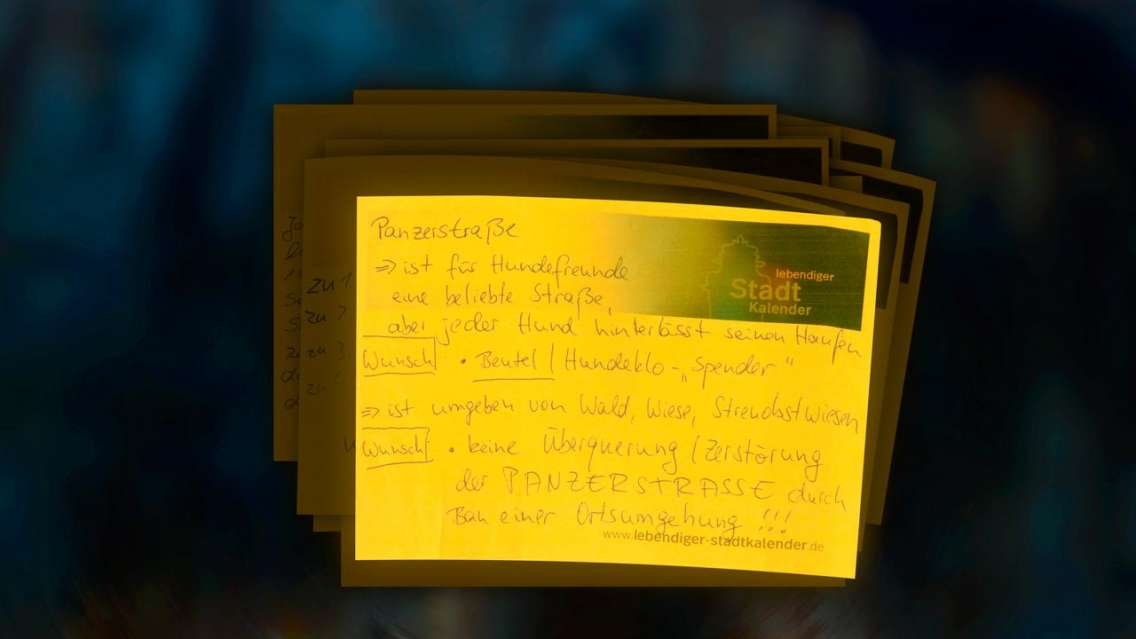 Panzerstraße
⇒ ist für Hundefreunde
eine beliebte Straße,
aber jeder Hund hinterlässt seinen Haufen
Wunsch • Beutel / Hundeklo-„Spender"
⇒ ist umgeben von Wald, Wiese, Streuobstwiesen
Wunsch • keine Überquerung / Zerstörung
der PANZERSTRASSE durch
Bau einer Ortsumgehung !!!
lebendiger
Stadt
Kalender
www.lebendiger-stadtkalender.de
zu 1
zu 2
zu 3